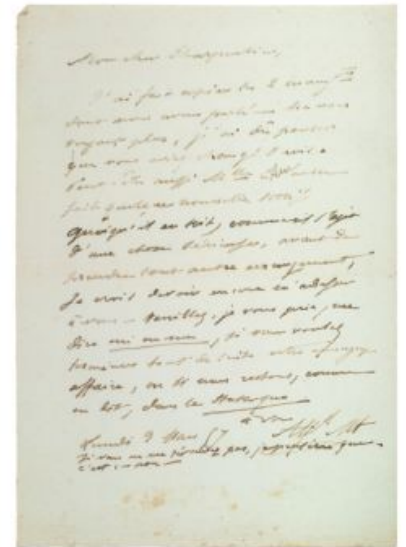 Mon cher Charpentier,
J'ai fait copier les 2
dont nous avons parlé ne
voyant plus, j'ai dû penser
que vous aviez changé d'avis
Peut-être aussi
fait quelque nouvelle
Quoiqu'il en soit, comme il s'agit
d'une chose sérieuse, avant de
prendre tout autre arrangement,
Je crois devoir encore m'adresser
à vous – veuillez, je vous prie, me
dire oui ou non, si vous voulez
terminer tout de suite votre
affaire, ou si nous restons, comme
on dit, dans le
à vous
Lundi 3 Mars
Si vous ne me répondez pas, je que
c'est non